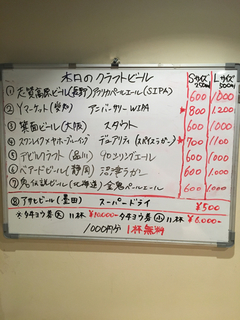 本日のクラフトビール Sサイズ 250ml Lサイズ 500ml
① 志賀高原ビール(長野)アフリカペールエール(SIPA) 600 1000
② Yマーケット(愛知) アンバーサリーWIPA 800 1,200
③ 箕面ビール(大阪) スタウト 600 1000
④ デュアリティ(スパイスラガー) 700 1100
⑤ デビルクラフト(品川) エール 600 1000
⑥ ベアードビール(静岡) 沼津ラガー 600 1000
⑦ 鬼伝説ビール(北海道) 金鬼ペールエール 600 1,000
⑧ アサヒビール(墨田) スーパードライ ¥500
※タキョウ券(大) 11杯 ¥10000- タキョウ券(小) 11杯 ¥6000-
1000円分 1杯無料